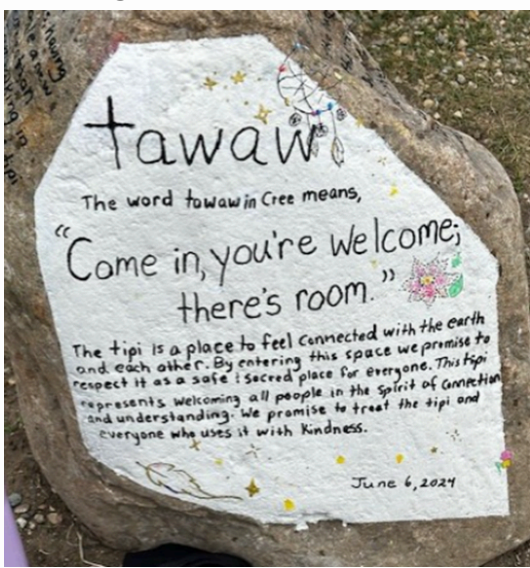 tawaw
The word tawaw in Cree means,
"Come in, you're welcome;
there's room."
The tipi is a place to feel connected with the earth
and each other. By entering this space we promise to
respect it as a safe & sacred place for everyone. This tipi
represents welcoming all people in the spirit of connection
and understanding. We promise to treat the tipi and
everyone who uses it with kindness.
June 6, 2024